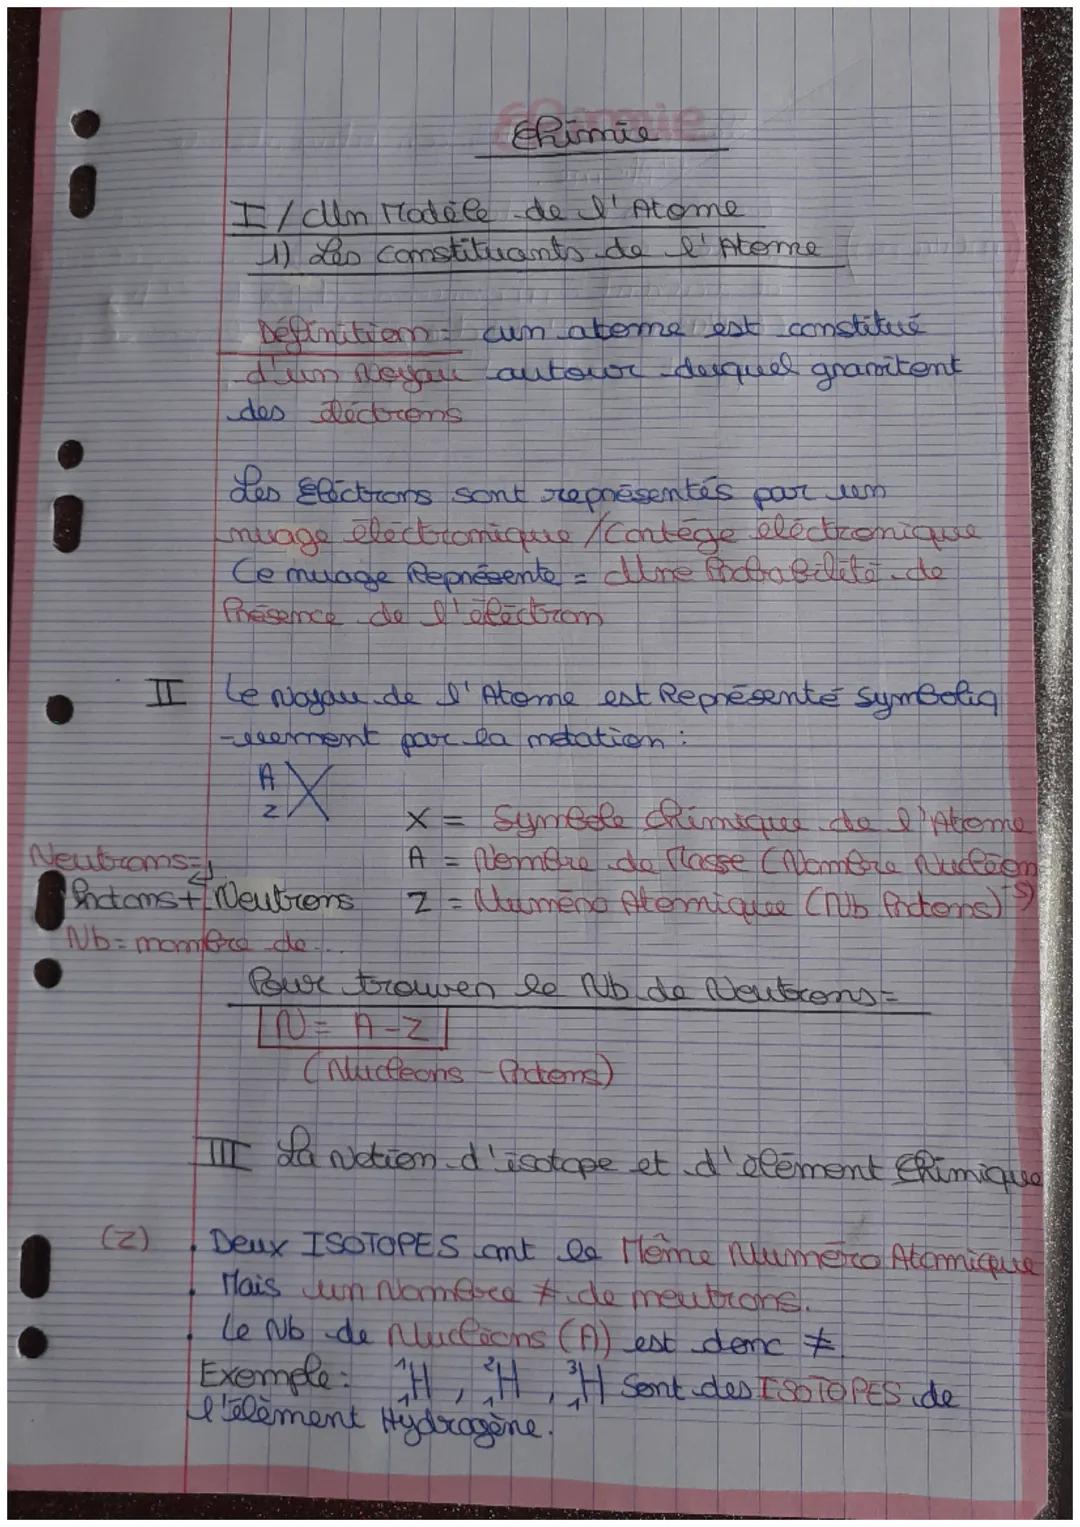 Chimie
I/ Un Modèle de l'Atome
1) Les constituants de l'Atome
Définition = un atome est constitué
d'un Noyau autour duquel gravitent
des électrons
Les Eléctrons sont représentés par un
nuage électronique / Cortège eléctronique
Ce nuage Représente = Une Probabilité de
Présence de l'éléctron
II Le Noyau de l'Atome est Représenté symboliq
-uement par la notation :
A
Z X
X = Symbole chimique de l'Atome
Neutrons= A = Nombre de Masse (Nombre Nucléon
Protons + Neutrons Z = Numéro Atomique (Nb Protons) s)
Nb = nombre de ...
Pour trouver le Nb de Neutrons=
N = A-Z
(Nucléons - Protons)
III La Notion d'isotope et d'élément Chimique
(Z) . Deux ISOTOPES ont le Même Numéro Atomique
. Mais un Nombre ≠ de neutrons.
. Le Nb de Nucléons (A) est donc ≠
Exemple : ¹₁H, ²₁H, ³₁H Sont des ISOTOPES de
l'élément Hydrogène.